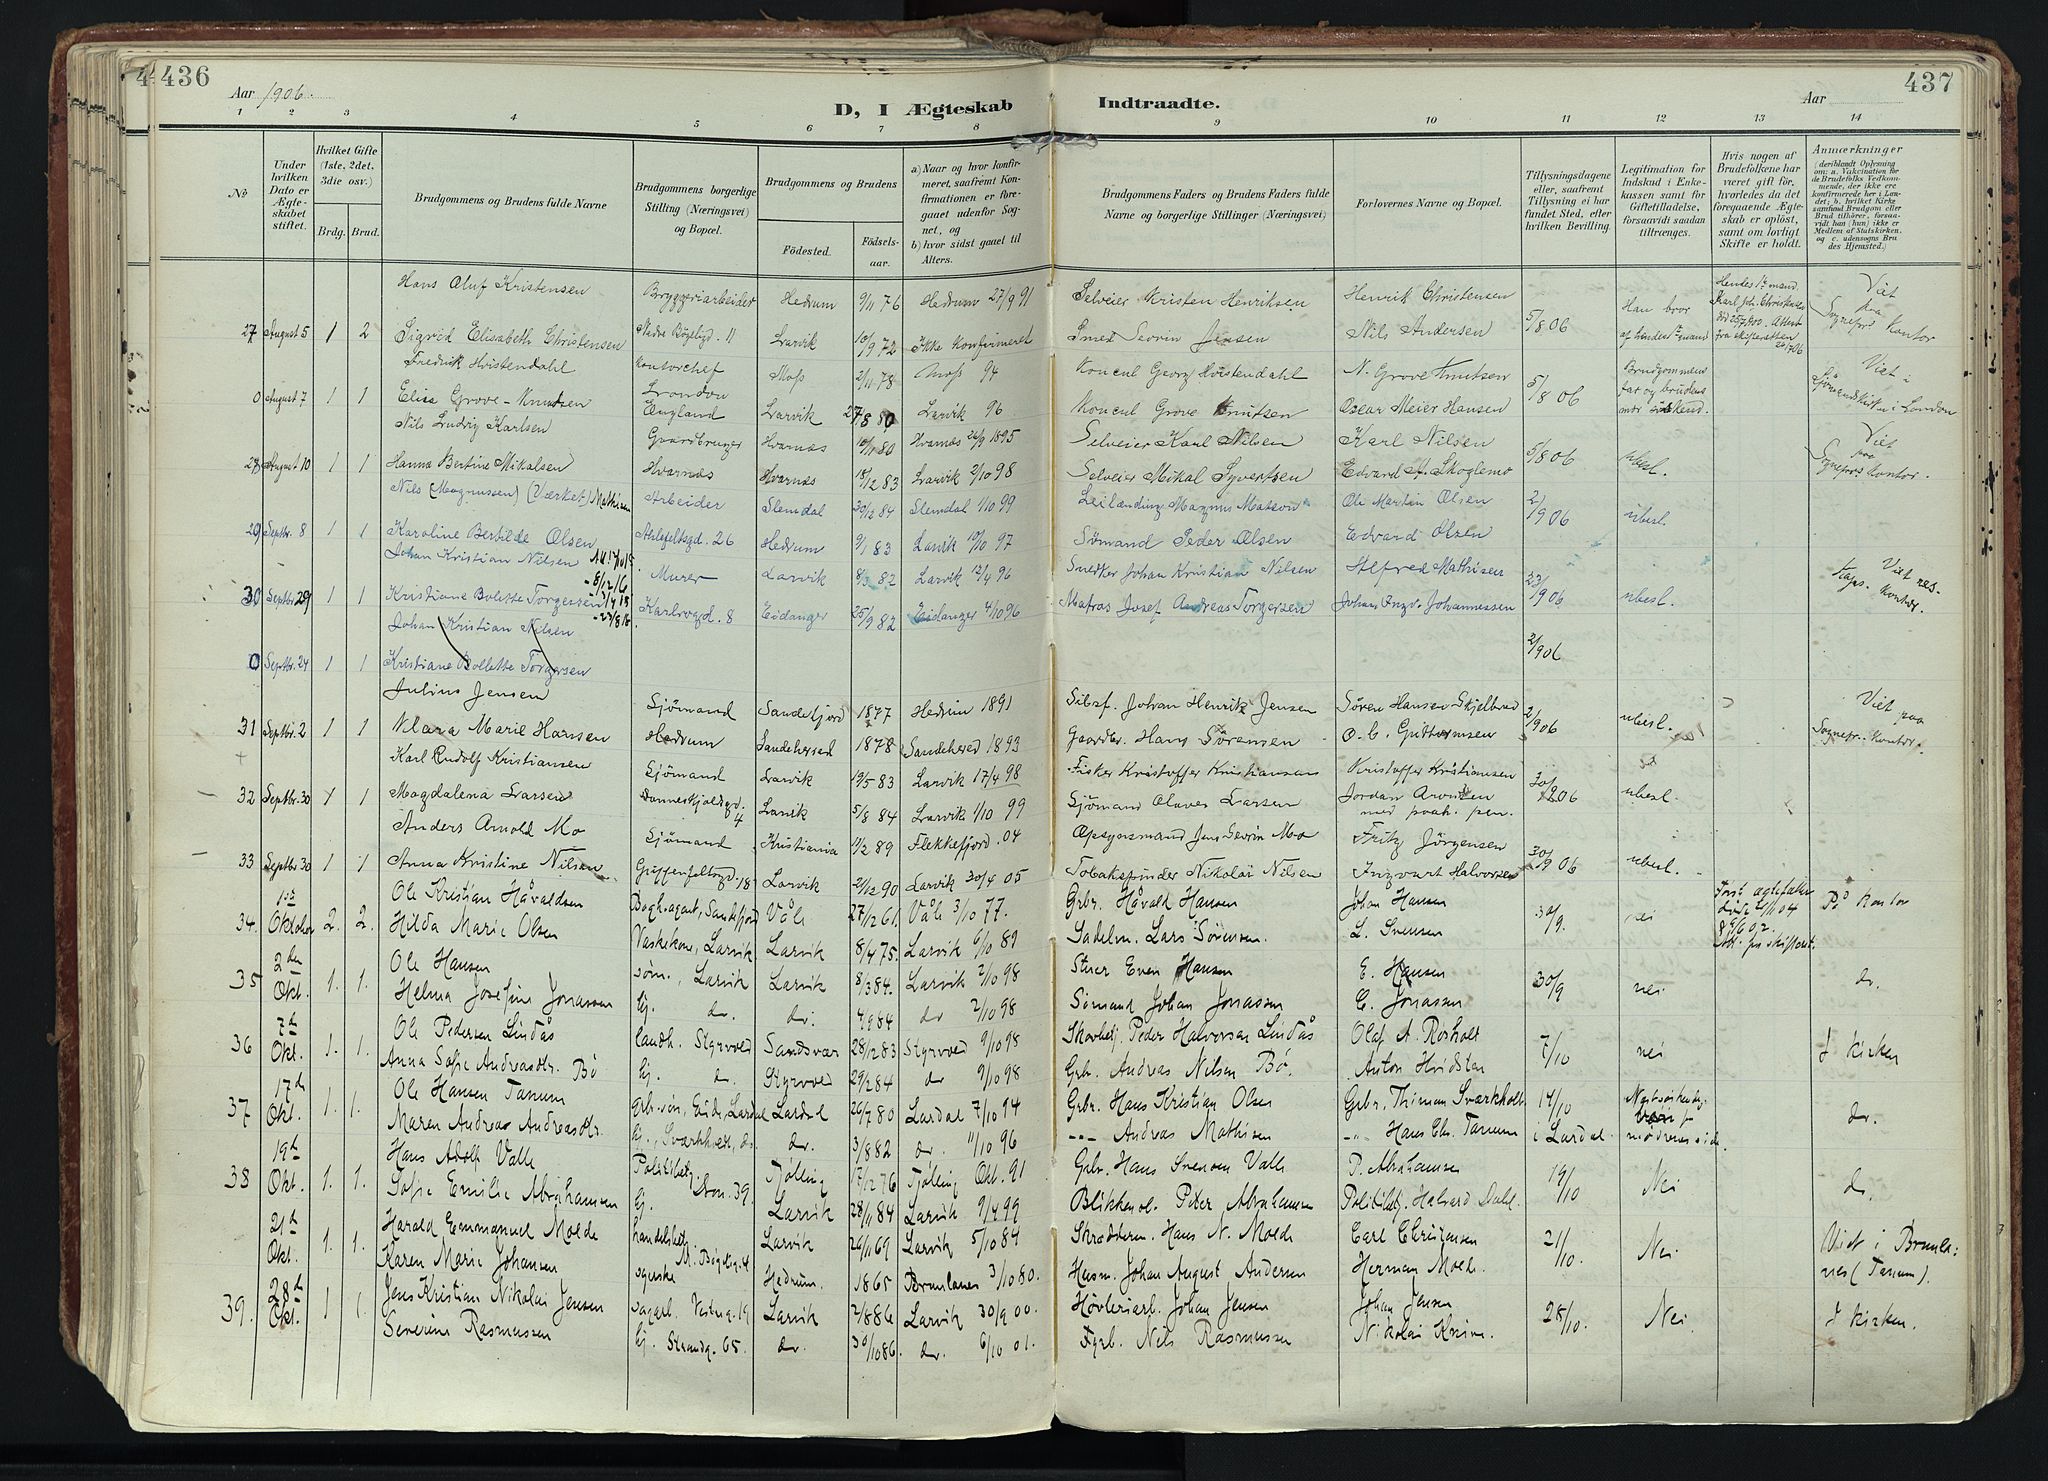 436
437
Aar 1906.
D, I Ægteskab
Indtraadte.
Aar
1 2 3 4 5 6 7 8 9 10 11 12 13 14
No
Under hvilken Dato er Ægteskabet stiftet.
Hvilket Gifte (1ste, 2det, 3die osv.)
Brdg. Brud.
Brudgommens og Brudens fulde Navne
Brudgommens borgerlige Stilling (Næringsvei) og Bopæl.
Brudgommens og Brudens
Fødested. Fødselsaar.
a) Naar og hvor konfirmeret, saafremt Konfirmationen er foregaaet udenfor Sognet, og
b) hvor sidst gaaet til Alters.
Brudgommens Faders og Brudens Faders fulde Navne og borgerlige Stillinger (Næringsvei)
Forlovernes Navne og Bopæl.
Tillysningsdagene eller, saafremt Tillysning ei har fundet Sted, efter hvilken Bevilling.
Legitimation for Indskud i Enkekassen samt for Giftetilladelse, forsaavidt saadan tiltrænges.
Hvis nogen af Brudefolkene har været gift før, hvorledes da det foregaaende Ægteskab er opløst, samt om lovligt Skifte er holdt.
Anmærkninger
(deriblandt Oplysning om: a. Vakcination for de Brudefolks Vedkommende, der ikke ere konfirmerede her i Landet; b. hvilket Kirkesamfund Brudgom eller Brud tilhører, forsaavidt han (hun) ikke er Medlem af Statskirken, og c. udensogns Brudes Hjemsted.)
Hans Oluf Kristensen Bryggeriarbeider Hedrum 9/11 76 Hedrum 27/9 91 Selveier Kristen Henriksen Henrik Christensen
27 August 5 1 2 Sigrid Elisabeth Christensen Nedre Bøgligd. 11 Larvik 10/9 72 Ikke Konfirmeret Smed Severin Jensen Nils Andersen 5/8 06 Han bror af hendes 1ste mand Hendes 1ste mand Karl Joh. Christensen Viet paa Sognepr. Kontor
Fredrik Hvistendahl Kontorchef Moss 2/11 78 Moss 94 Konsul Georg Hvistendahl N. Grove Knutsen
0 August 7 1 1 Elise Grove-Knudsen London England Larvik 27/8 80 Larvik 96 Konsul Grove Knutsen Oscar Meier Hansen 5/8 06 Brudgommens far og brudens mor søskend. Viet i Sjömandskirken i London
Nils Ludvig Karlsen Gaardbruger Hvarnæs 10/1 80 Hvarnæs 26/9 1895 Selveier Karl Nilsen Karl Nilsen
28 August 10 1 1 Hanna Bertine Mikalsen Hvarnæs Hvarnæs 18/12 83 Larvik 2/10 98 Selveier Mikal Syvertsen Edvard A. Skoglemo 5/8 06 ubesl. Viet paa Sognepr. Kontor.
Nils (Magnussen) (Værket) Mathisen Arbeider Slemdal 30/12 84 Slemdal 1/10 99 Leilænding Magnus Matson Ole Martin Olsen
29 Septbr. 8 1 1 Karoline Bertilde Olsen Ahlefeltsgd. 26 Hedrum 9/1 83 Larvik 10/10 97 Sømand Peder Olsen Edvard Olsen 2/9 06 ubesl.
Johan Kristian Nilsen Murer Larvik 8/3 82 Larvik 12/4 96 Snedker Johan Kristian Nilsen Alfred Mathisen
30 Septbr 29 1 1 Kristiane Bolette Torgersen Karlsrogd. 8 Eidanger 25/9 82 Eidanger 4/10 96 Matros Josef Andreas Torgersen Johan Ingv. Johannessen 23/9 06 ubesl. Viet res. kaps. kontor.
Johan Kristian Nilsen
0 Septbr. 24 1 1 Kristiane Bollette Torgersen 2/9 06
Julius Jensen Sjömand Sandefjord 1877 Hedrum 1891 Johan Henrik Jensen Sören Hansen Skjelbred
31 Septbr. 2 1 1 Klara Marie Hansen Hedrum Sandeherred 1878 Sandeherred 1893 Gaardbr. Hans Sörensen O. C. Guttormsen 2/9 06 ubesl. Viet paa Sognepr. Kontor.
Karl Rudolf Kristiansen Sjömand Larvik 19/5 83 Larvik 17/4 98 Fisker Kristoffer Kristiansen Kristoffer Kristiansen
32 Septbr. 30 1 1 Magdalena Larsen Danneskjoldsgd. 4 Larvik 5/8 84 Larvik 1/10 99 Sjömand Olaves Larsen Jordan Arntsen med paah. pen. 30/9 06 ubesl.
Anders Arnold Mo Sjömand Kristiania Flekkefjord. 04 Opsynsmand Jens Severin Mo Fritz Jörgensen
33 Septbr 30 1 1 Anna Kristine Nilsen Griffenfeltsgd. 18 Larvik 21/12 90 Larvik 30/4 05 Tobakspinder Nikolai Nilsen Ingvart Halvorsen 30/9 06 ubesl.
Ole Kristian Håvaldsen Boghagent, Sandefjord Våle 27/12 61 Våle 3/10 77. Grbr. Håvald Hansen Johan Hansen
34. 1ste Oktober 2. 2. Hilda Marie Olsen Vaskekone, Larvik Larvik 8/4 75. Larvik 6/10 89 Sadelm. Lars Sørensen. L. Svensen 30/9. nei På kontor
Ole Hansen søm., Larvik Larvik 8/3 84. Larvik 2/10 98 Stuer Even Hansen E. Hansen
35 2den Okt. 1. 1. Helma Josefine Jonassen hj. dr. dr. 4/9 84 dr 2/10 98 Sømand Johan Jonassen C. Jonassen 30/9 nei dr.
Ole Pedersen Lindås landh. Styrvoll Sandsvær 28/12 83 Styrvoll 9/10 98 Skovarb. Peder Halvorsen Lindås Olaf A. Rosholt
36 7de Okt. 1. 1. Anna Sofie Andreasdtr. Bø hj. d. Styrvoll 29/2 84 dr 9/10 98 Grb. Andreas Nilsen Bø. Anton Hvidsten 7/10 nei I kirken
Ole Hansen Tanum Grbr.søn, Eide, Lardal Lardal 26/7 80 Lardal 7/10 94 Grbr. Hans Kristian Olsen Grbr. Thimian Svarkholt 14/10
37 17de Okt. 1. 1. Maren Andrea Andreasdtr. hj., Svarkholt, dr. dr. 3/8 82 dr. 11/10 96 --- Andreas Mathisen -"- Hans Chr. Tanum i Lardal. Næstsøskendebørn på mødrenes side dr.
Hans Adolf Valle Politibetj. Tjølling 17/12 76 Tjølling Okt. 91 Grbr. Hans Svensen Valle P. Abrahamsen
38 19de Okt. 1. 1. Sofie Emilie Abrahamsen hj. Larvik 28/11 84 Larvik 9/4 99 Blikkensl. Peder Abrahamsen Politibtj. Halvard Dahl. 19/10 Nei dr.
Harald Emmanuel Molde handelsbetj. Larvik 26/11 69 Larvik 5/10 84 Skræddern. Hans N. Molde Carl Christensen
21de Okt. 1. 1. Karen Marie Johansen syerske Hedrum. 1865 Brunlanes 3/10 80. Husm. Johan August Andersen Herman Molde 21/10. Nei Viet i Brunlanes (Tanum).
Jens Kristian Nikolai Jensen sagarb. Vestreg. 19 Larvik 2/8 86 Larvik 30/9 00. Høvleriarb. Johan Jensen Johan Jensen
39. 28de Okt. 1 1. Severine Rasmussen hj. Strandg. 65. dr. 30/10 86. dr. 6/10 01. Fgrb. Nils Rasmussen Nikolai Knive. 28/10. Nei I kirken.